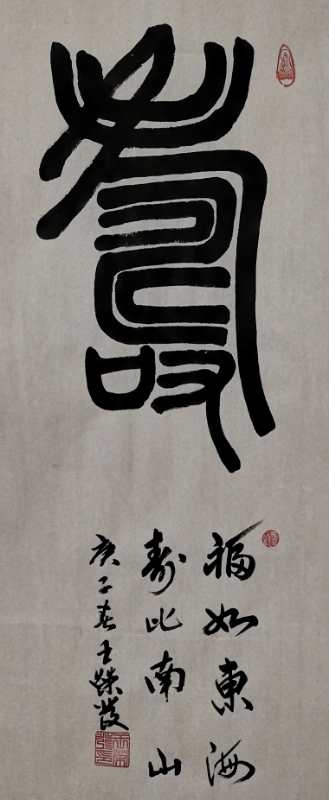 壽
福如東海
壽比南山
庚子春王榮發